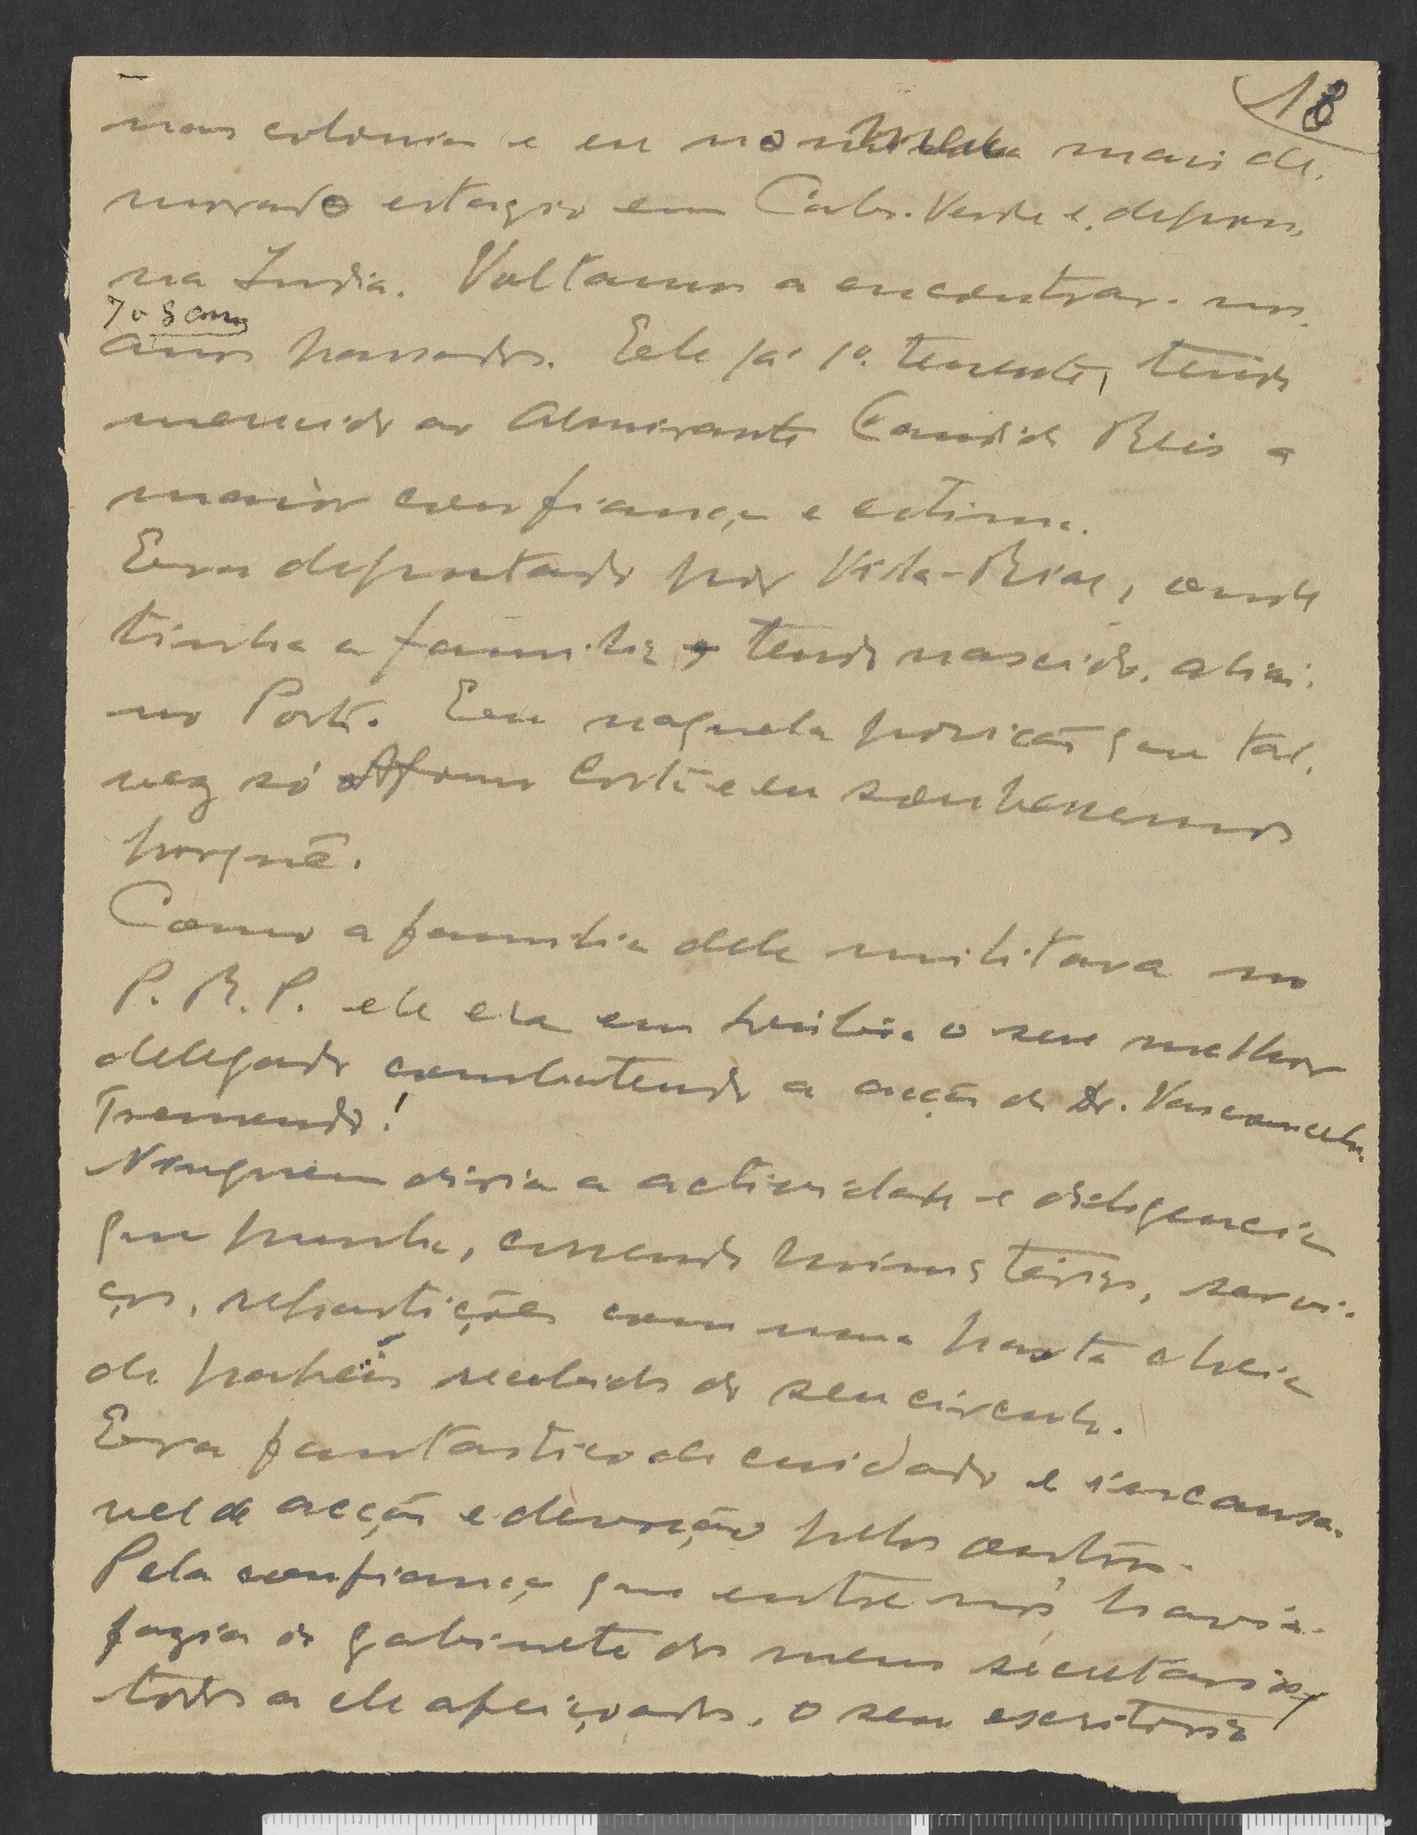 18
nas colonias e eu no mais de-
morado estagio em Cabo-Verde e, depois,
na India. Voltamos a encontrar-nos
7 o 8 anos
anos passados. Ele já 1º. tenente, tendo
merecido ao Almirante Candido Reis a
maior confiança e estima.
Era deputado por Vila-Real, onde
tinha a familia, tendo nascido, aliás,
no Porto. Eu naquela posição que tal-
vez só Afonso Costa e eu soubessemos
porquê.
Como a familia dele militava no
P. R. P. ele era em familia o seu melhor
delegado combatendo a acção do Dr. Vasconcelos.
Tremendo!
Ninguem diria a actividade e deligencia
que punha, correndo ministérios, servi-
ços, repartições com uma pasta cheia
de papeis recebidos do seu circulo.
Era fantastico de cuidado e incansa-
vel de acção e devoção pelos outros.
Pela confiança que entre nós havia
fazia do gabinete dos meus secretarios,
todos a ele afeiçoados, o seu escritorio